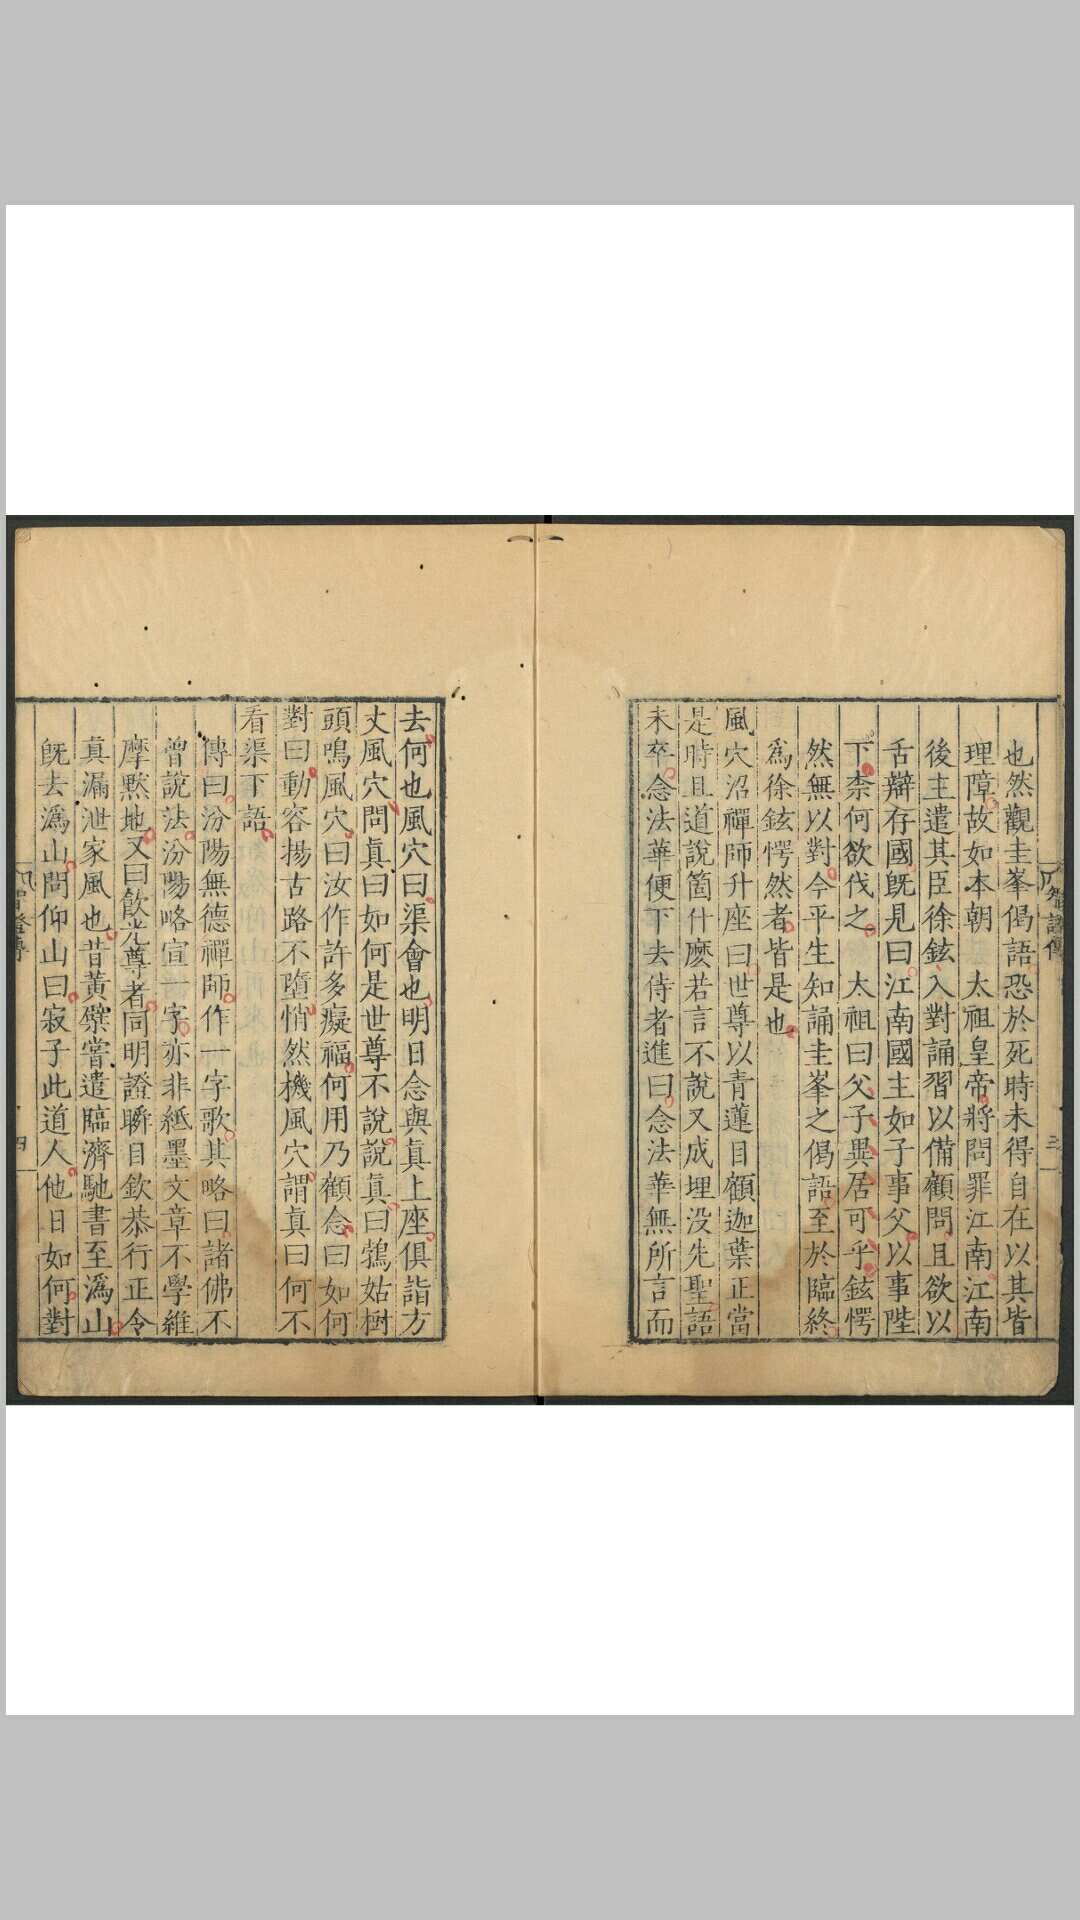 也然觀圭峯偈語恐於死時未得自在以其皆
理障故如本朝　太祖皇帝將問罪江南江南
後主遣其臣徐鉉入對誦習以備顧問且欲以
舌辯存國旣見曰江南國主如子事父以事陛
下柰何欲伐之　太祖曰父子異居可乎鉉愕
然無以對今平生知誦圭峯之偈語至於臨終
爲徐鉉愕然者皆是也
風穴沼禪師升座曰世尊以青蓮目顧迦葉正當
是時且道說箇什麽若言不說又成埋没先聖語
未卒念法華便下去侍者進曰念法華無所言而
去何也風穴曰渠會也明日念與眞上座俱詣方
丈風穴問眞曰如何是世尊不說說眞曰鵓姑樹
頭鳴風穴曰汝作許多癡福何用乃顧念曰如何
對曰動容揚古路不墮悄然機風穴謂眞曰何不
看渠下語
傳曰汾陽無德禪師作一字歌其略曰諸佛不
曾說法汾陽略宣一字亦非紙墨文章不學維
摩默地又曰飮光尊者同明證瞬目欽恭行正令
眞漏泄家風也昔黃檗嘗遣臨濟馳書至潙山
旣去潙山問仰山曰寂子此道人他日如何對
智證傳
三
智證傳
四